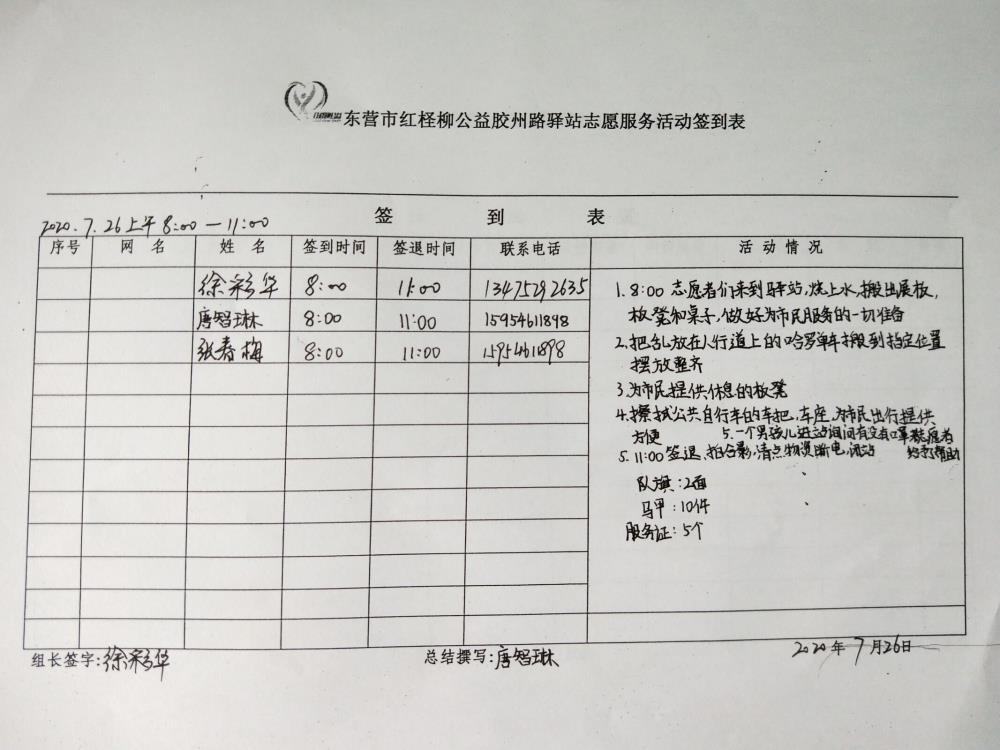 东营市红柽柳公益胶州路驿站志愿服务活动签到表
签 到 表
2020.7.26上午8:00—11:00
序号 网 名 姓 名 签到时间 签退时间 联系电话 活 动 情 况
徐彩华 8:00 11:00 13475292635
唐智琳 8:00 11:00 15954611898
张春梅 8:00 11:00 15954611898
1. 8:00 志愿者们来到驿站,烧上水,搬出展板,
板凳和桌子,做好为市民服务的一切准备
2.把乱放在人行道上的哈罗单车搬到指定位置
摆放整齐
3.为市民提供休息的板凳
4.擦拭公共自行车的车把,车座,为市民出行提供
方便 5.一个男孩儿进站询问有没有口罩,志愿者
给予帮助
5. 11:00签退、拍合影,清点物资断电,闭站
队旗:2面
马甲:10件
服务证:5个
组长签字:徐彩华 总结撰写:唐智琳 2020年7月26日